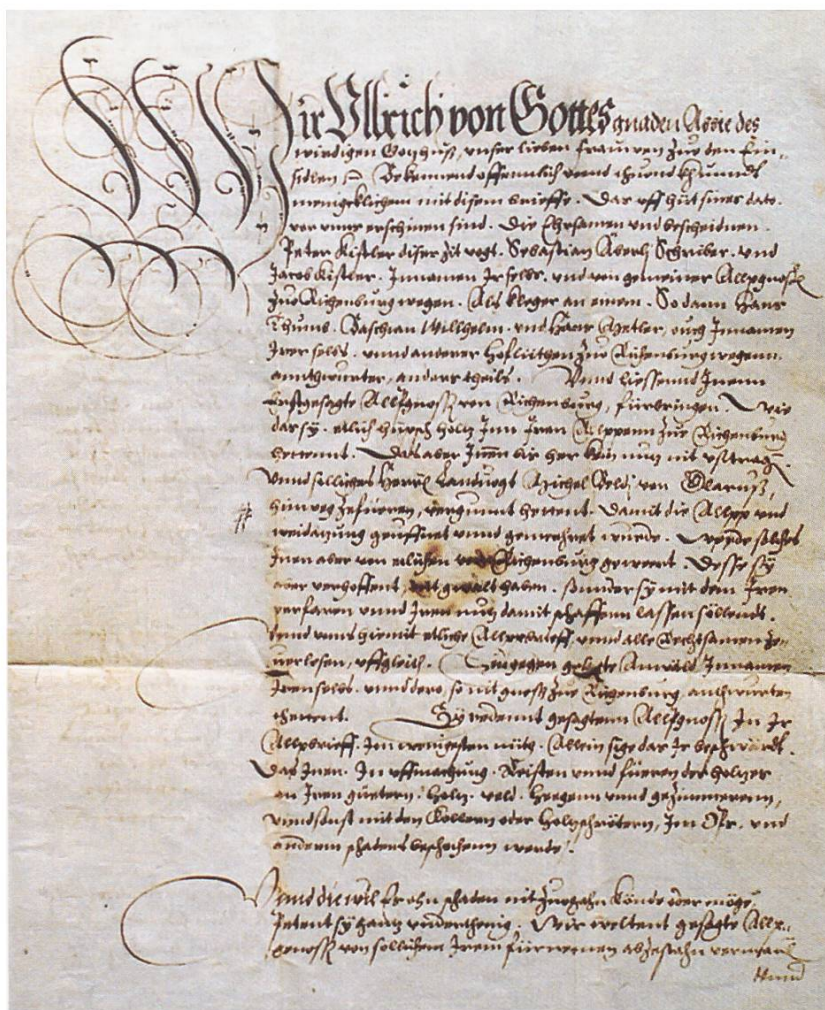 Wir Ullrich von Gottes gnaden Abbte des
wirdigen Gotzhuß, unser lieben frauwen zue den Ein-
sidlen Bekennend offennlich unnd thuund khundt
mengklichem mit disem brieffe. Das uff hüt sines dato.
vor unns erschinen sind. Die Ehrsamen und bescheidnen.
Peter Kistler diser zit vogt. Sebastian Aberli Schriber. und
Jacob Kistler. Innamen Ir selbs. und von gemeiner Allpgnoß
zue Richenburg wegen. Als kleger an einem. So dann Hans
Thumb. Baschian Willhelm. und Hans Zetler, ouch Innamen
Irer selbs. unnd anderer Hoflütthen zue Richenburg wegenn.
anntthwurter, anders theils. Unnd liessennd Inenn
Erstgesagte Allpgnoß von Richenburg, fürbringen. Wie
das sy. etlich hürsch holtz Inn Iren Allppenn zue Richenburg
hettent. Das aber Inen bis her kein nutz nit usstrag.
Unnd sölliches Herr Landtvogt Michel Beldi von Glaruß,
hinweg zefüeren, vergunnt hettent. Damit die Allpp und
weidgung geuffnet unnd gemehret wurde. Werde solches
Inen aber von etlichen von Richenburg gewert. Desse sy
aber verhoffent, nit gwalt haben. sonder sy mit dem Iren
verfaren unnd Iren nutz damit schaffenn lassen söllendt.
Unnd unns hiemit etliche Allpbrieff, unnd alle Rechtsamen ze-
verlesen, uffgleith. Entgegen gelegte Anwäld Innamen
Iren selbs. unnd dero, so nit gnoß zue Richenburg, anthwurten
thettent. Sy redennt gesagtenn Allpgnoß In Ir
Allpbrieff. Im wenigesten nütz. Allein sige das Ir beschwärdt.
Das Inen. In uffmachung. Reisten unnd füeren der holtzer
an Iren güetern. holtz. veld. Hegenn unnd gezimmerenn,
unnd sunst mit den Kollern oder Holtzschrötern, Im Ops. und
anderm schadens beschechenn werde.
Unnd diewil Er ohn schaden nit zuegahn könde oder möge,
Petent sy gantz underthenig. Wir weltent gesagte Allp-
gnoß von sollichem Irem fürnemen abzestahn vermanen
Unnd